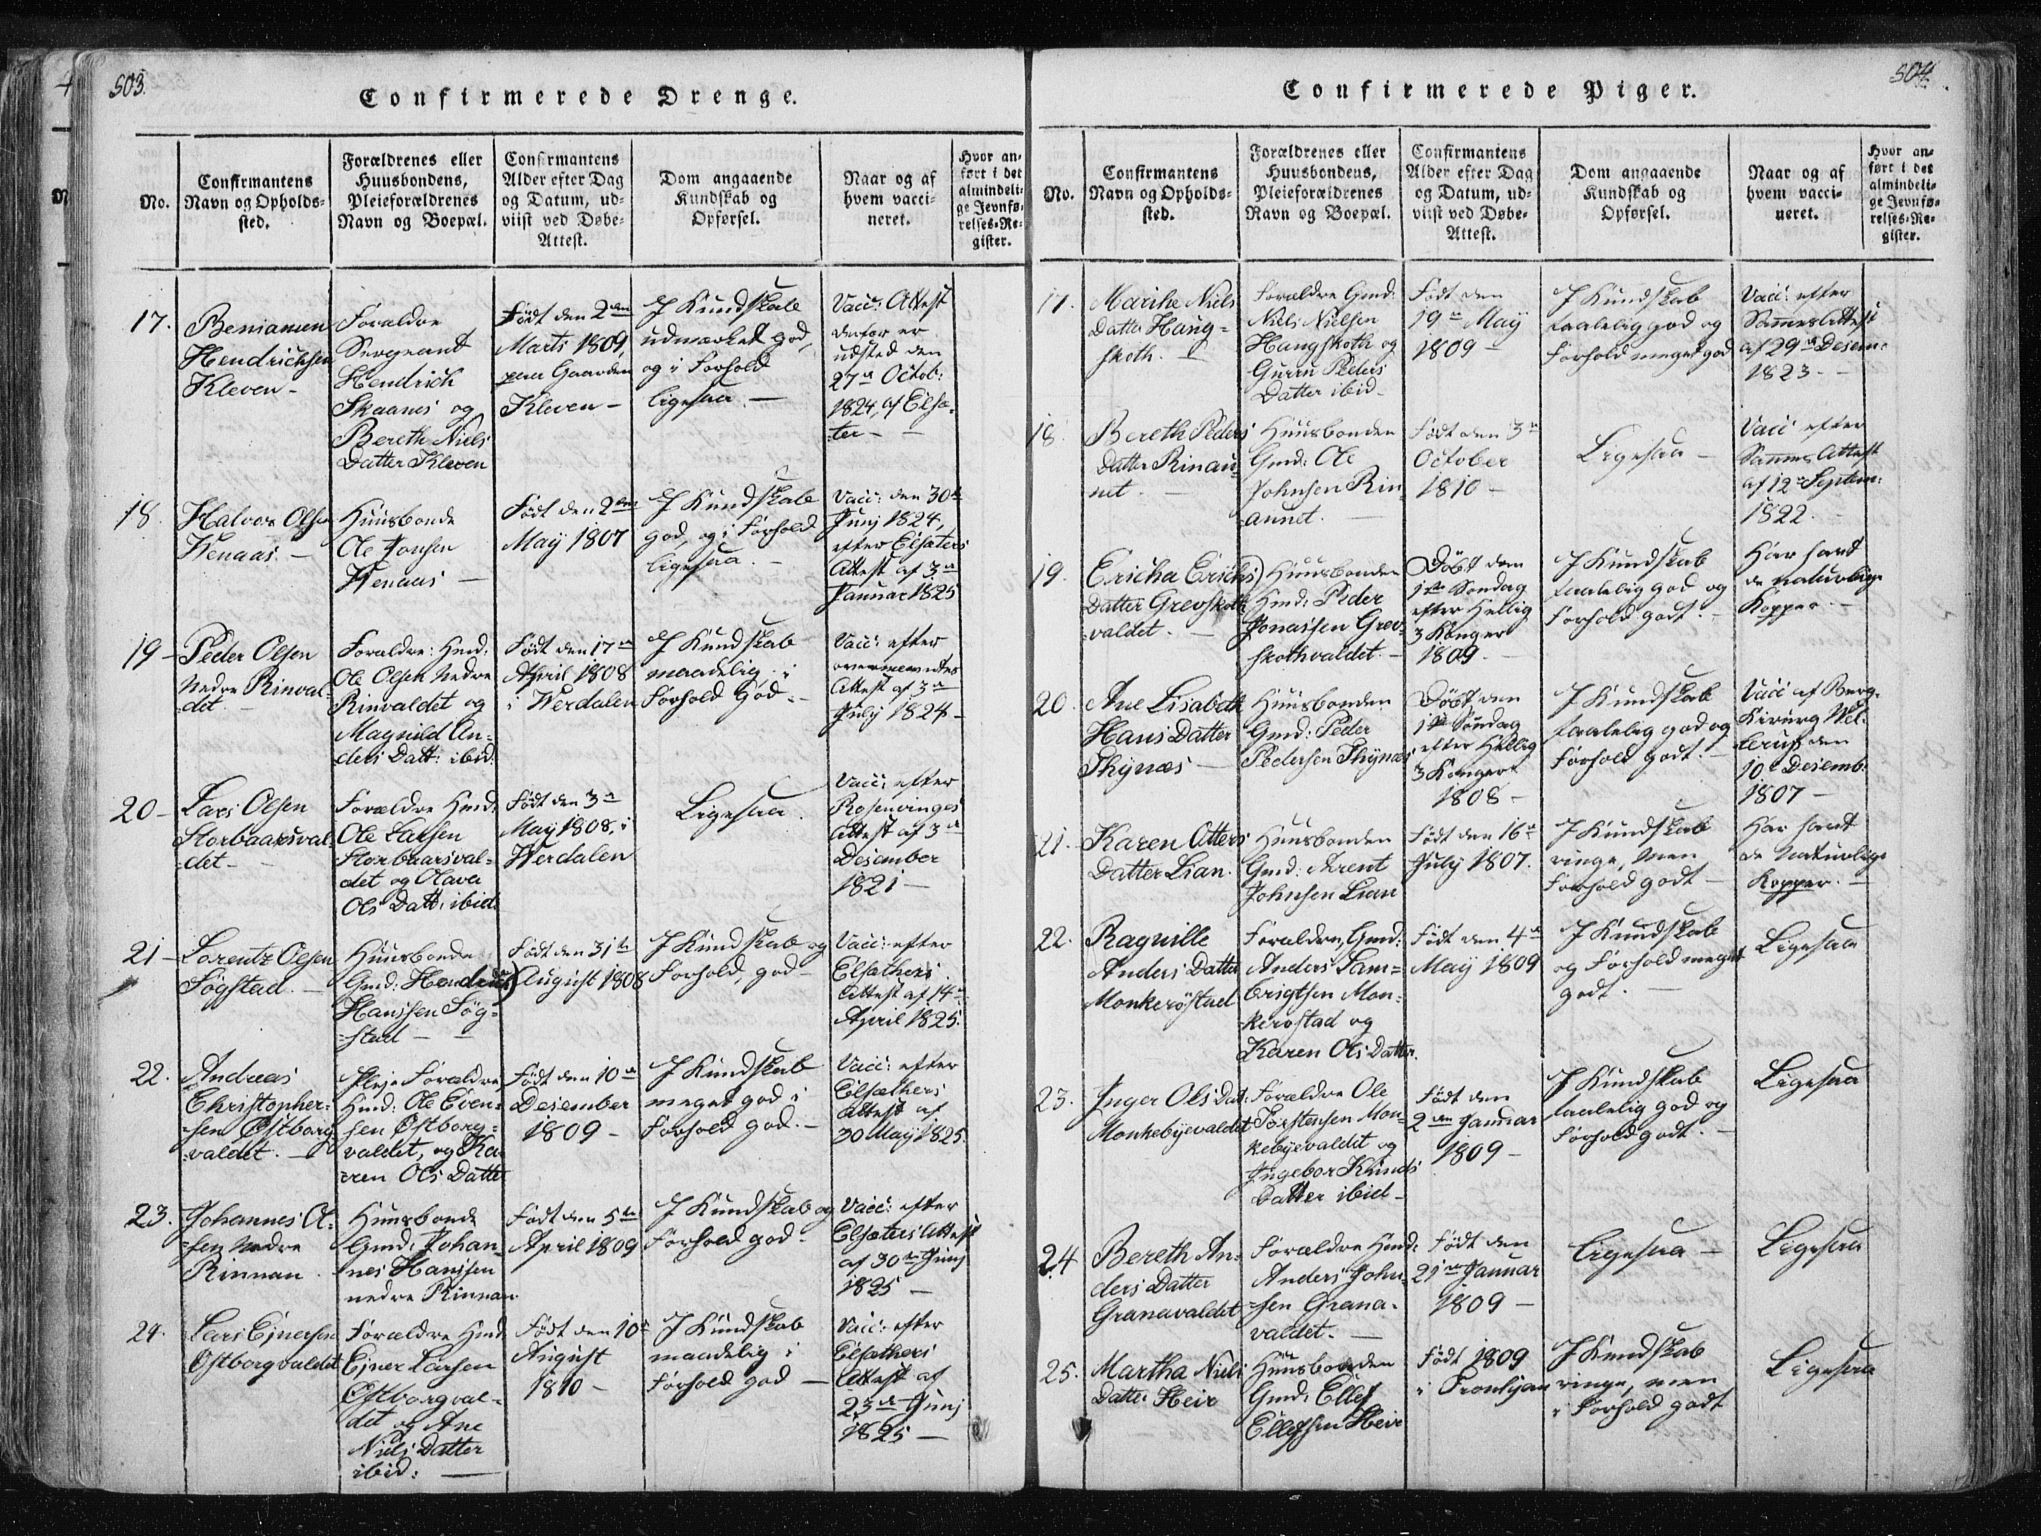 503.
Confirmerede Drenge.
No.
Confirmantens
Navn og Opholds-
sted.
Forældrenes eller
Huusbondens,
Pleieforældrenes
Navn og Boepæl.
Confirmantens
Alder efter Dag
og Datum, ud-
viist ved Døbe-
Attest.
Dom angaaende
Kundskab og
Opførsel.
Naar og af
hvem vacci-
neret.
Hvor an-
ført i det
almindeli-
ge Jevnfø-
relses-Re-
gister.
17.
Beniamen
Hendrichsen
Kleven -
Foraldre
Sergeant
Hendrich
Skaanes og
Bereth Niels
Datter Kleven
Født den 2den
Marts 1809,
paa Gaarden
Kleven -
I Kundskab
udmærket god,
og i Forhold
ligesaa. -
Vacc: Attest
derfor er
udsted den
27de Octob:
1824, af Elsæ-
ter -
18.
Halvor Olsen
Wenaas. -
Huusbonde
Ole Jonsen
Wenaas -
Født den 2den
May 1807
I Kundskab
god, og i Forhold
ligesaa. -
Vacc: den 30te
Junj 1824,
efter Elsæters
Attest af 3de
Januar 1825
19 -
Peder Olsen
Nedre Rinval-
det. -
Foraldre: Hmd:
Ole Olsen Nedre
Rinvaldet og
Magnild An-
ders Datt: ibid.
Født den 17de
April 1808
i Werdalen
I Kundskab
maadelig, i
Forhold God. -
Vacc: efter
Attest af 3de
July 1824 -
20 -
Lars Olsen
Storbaarsval-
det -
Forældre Hmd:
Ole Larsen
Storbaarsval-
det og Olava
Ols Datt: ibid.
Født den 3de
May 1808, i
Werdalen
Ligesaa.
Vacc: efter
Rosenvinges
Attest af 3de
Desember
1821 -
21 -
Lorentz Olsen
Søgstad. -
Huusbonde
Gmd: Hendrich
Hanssen Søg-
stad -
Født den 31te
August 1808
I Kundskab og
Forhold, god -
Vacc: efter
Elsæthers
Attest af 14de
April 1825.
22.
Andreas
Christopher-
sen Østborg-
valdet. -
Pleje Forældre
Hmd: Ole Even-
sen Østborg-
valdet, og Ka-
ren Ols Datter
Født den 10de
Desember
1809 -
I Kundskab
meget god i
Forhold god. -
Vacc: efter
Elsæthers
Attest af
30 May 1825.
23.
Johannes Ol-
sen Nedre
Rinnan.
Huusbonde
Gmd: Johan-
nes Hanssen
nedre Rinnan
Født den 5te
April 1809
I Kundskab og
Forhold god. -
Vacc: efter
Elsæters Attest
af 30te Junj
1825 -
24.
Lars Ejnersen
Østborgvaldet
Forældre Hmd
Ejner Larsen
Østborgval-
det og Ane
Niels Datter
ibid: -
Født den 10de
August
1810 -
I Kundskab
maadelig i
Forhold god -
Vacc: efter
Elsæthers
Attest af
23de Junj
1825 -
504.
Confirmerede Piger.
No.
Confirmantens
Navn og Opholds-
sted.
Forældrenes eller
Huusbondens,
Pleieforældrenes
Navn og Boepæl.
Confirmantens
Alder efter Dag
og Datum, ud-
viist ved Døbe-
Attest.
Dom angaaende
Kundskab og
Opførsel.
Naar og af
hvem vacci-
neret.
Hvor an-
ført i det
almindeli-
ge Jevnfø-
relses-Re-
gister.
17.
Marithe Niels
Datter Haug-
skoth. -
Foraldre Gmd:
Niels Nielsen
Haugskoth og
Gurru Peders
Datter ibid -
Født den
19de May
1809 -
I Kundskab
taalelig god og
Forhold meget god
Vacc: efter
Sammes Attest
af 29de Desem-
1823 -
18.
Bereth Peders
Datter Rinau-
net. -
Huusbonden
Gmd: Ole
Johnsen Rin-
aunet. -
Født den 3de
October
1810 -
Ligesaa -
Vacc: efter
Sammes Attest
af 12te Septem:
1822. -
19.
Ericha Erichs
Datter Grevskoth-
valdet. -
Huusbonden
Hmd: Peder
Jonassen Grev-
skothvaldet. -
Døbt den
1ste Søndag
efter Hellig
3 Konger
1809. -
I Kundskab
taalelig god og
Forhold godt. -
Har havt
de naturlige
Kopper. -
20.
Ane Lisabeth
Hans Datter
Thynæs -
Huusbonden
Gmd: Peder
Pedersen Thynæs
Døbt den
1ste Søndag
efter Hellig
3 Konger
1808 -
I Kundskab
taalelig god og
Forhold godt. -
Vacc af Berg-
Kirurg
den
10de Desemb:
1807 -
21.
Karen Otters
Datter Lian.
Huusbonden
Gmd: Arent
Johnsen Lian
Født den 16de
July 1807.
I Kundskab
ringe, Men
Forhold godt -
Har havt
de Naturlige
Kopper. -
22.
Ragnille
Anders Datter
Monkerøstad
Forældre, Gmd:
Anders Lam-
brigtsen Mon-
kerøstad og
Karen Ols Datter.
Født den 4de
May 1809
I Kundskab
og Forhold meget
godt. -
Ligesaa
23.
Inger Ols Dat.
Monkebyevaldet
Forældre Ole
Torstensen Mon-
kebyevaldet og
Ingebor Knuds
Datter ibid -
Født den
2den Januar
1809 -
I Kundskab
taalelig god og
Forhold godt. -
Ligesaa
24
Bereth An-
ders Datter
Granavaldet
Forældre Hmd:
Anders John-
sen Grana-
valdet. -
Født den
21de Januar
1809 -
Ligesaa -
Ligesaa
25.
Martha Niels
Datter Heir
Huusbonden
Gmd: Ellef
Ellefsen Heir
Født 1809
i Tronhjem
I Kundskab
ringe, men
i Forhold godt
Ligesaa